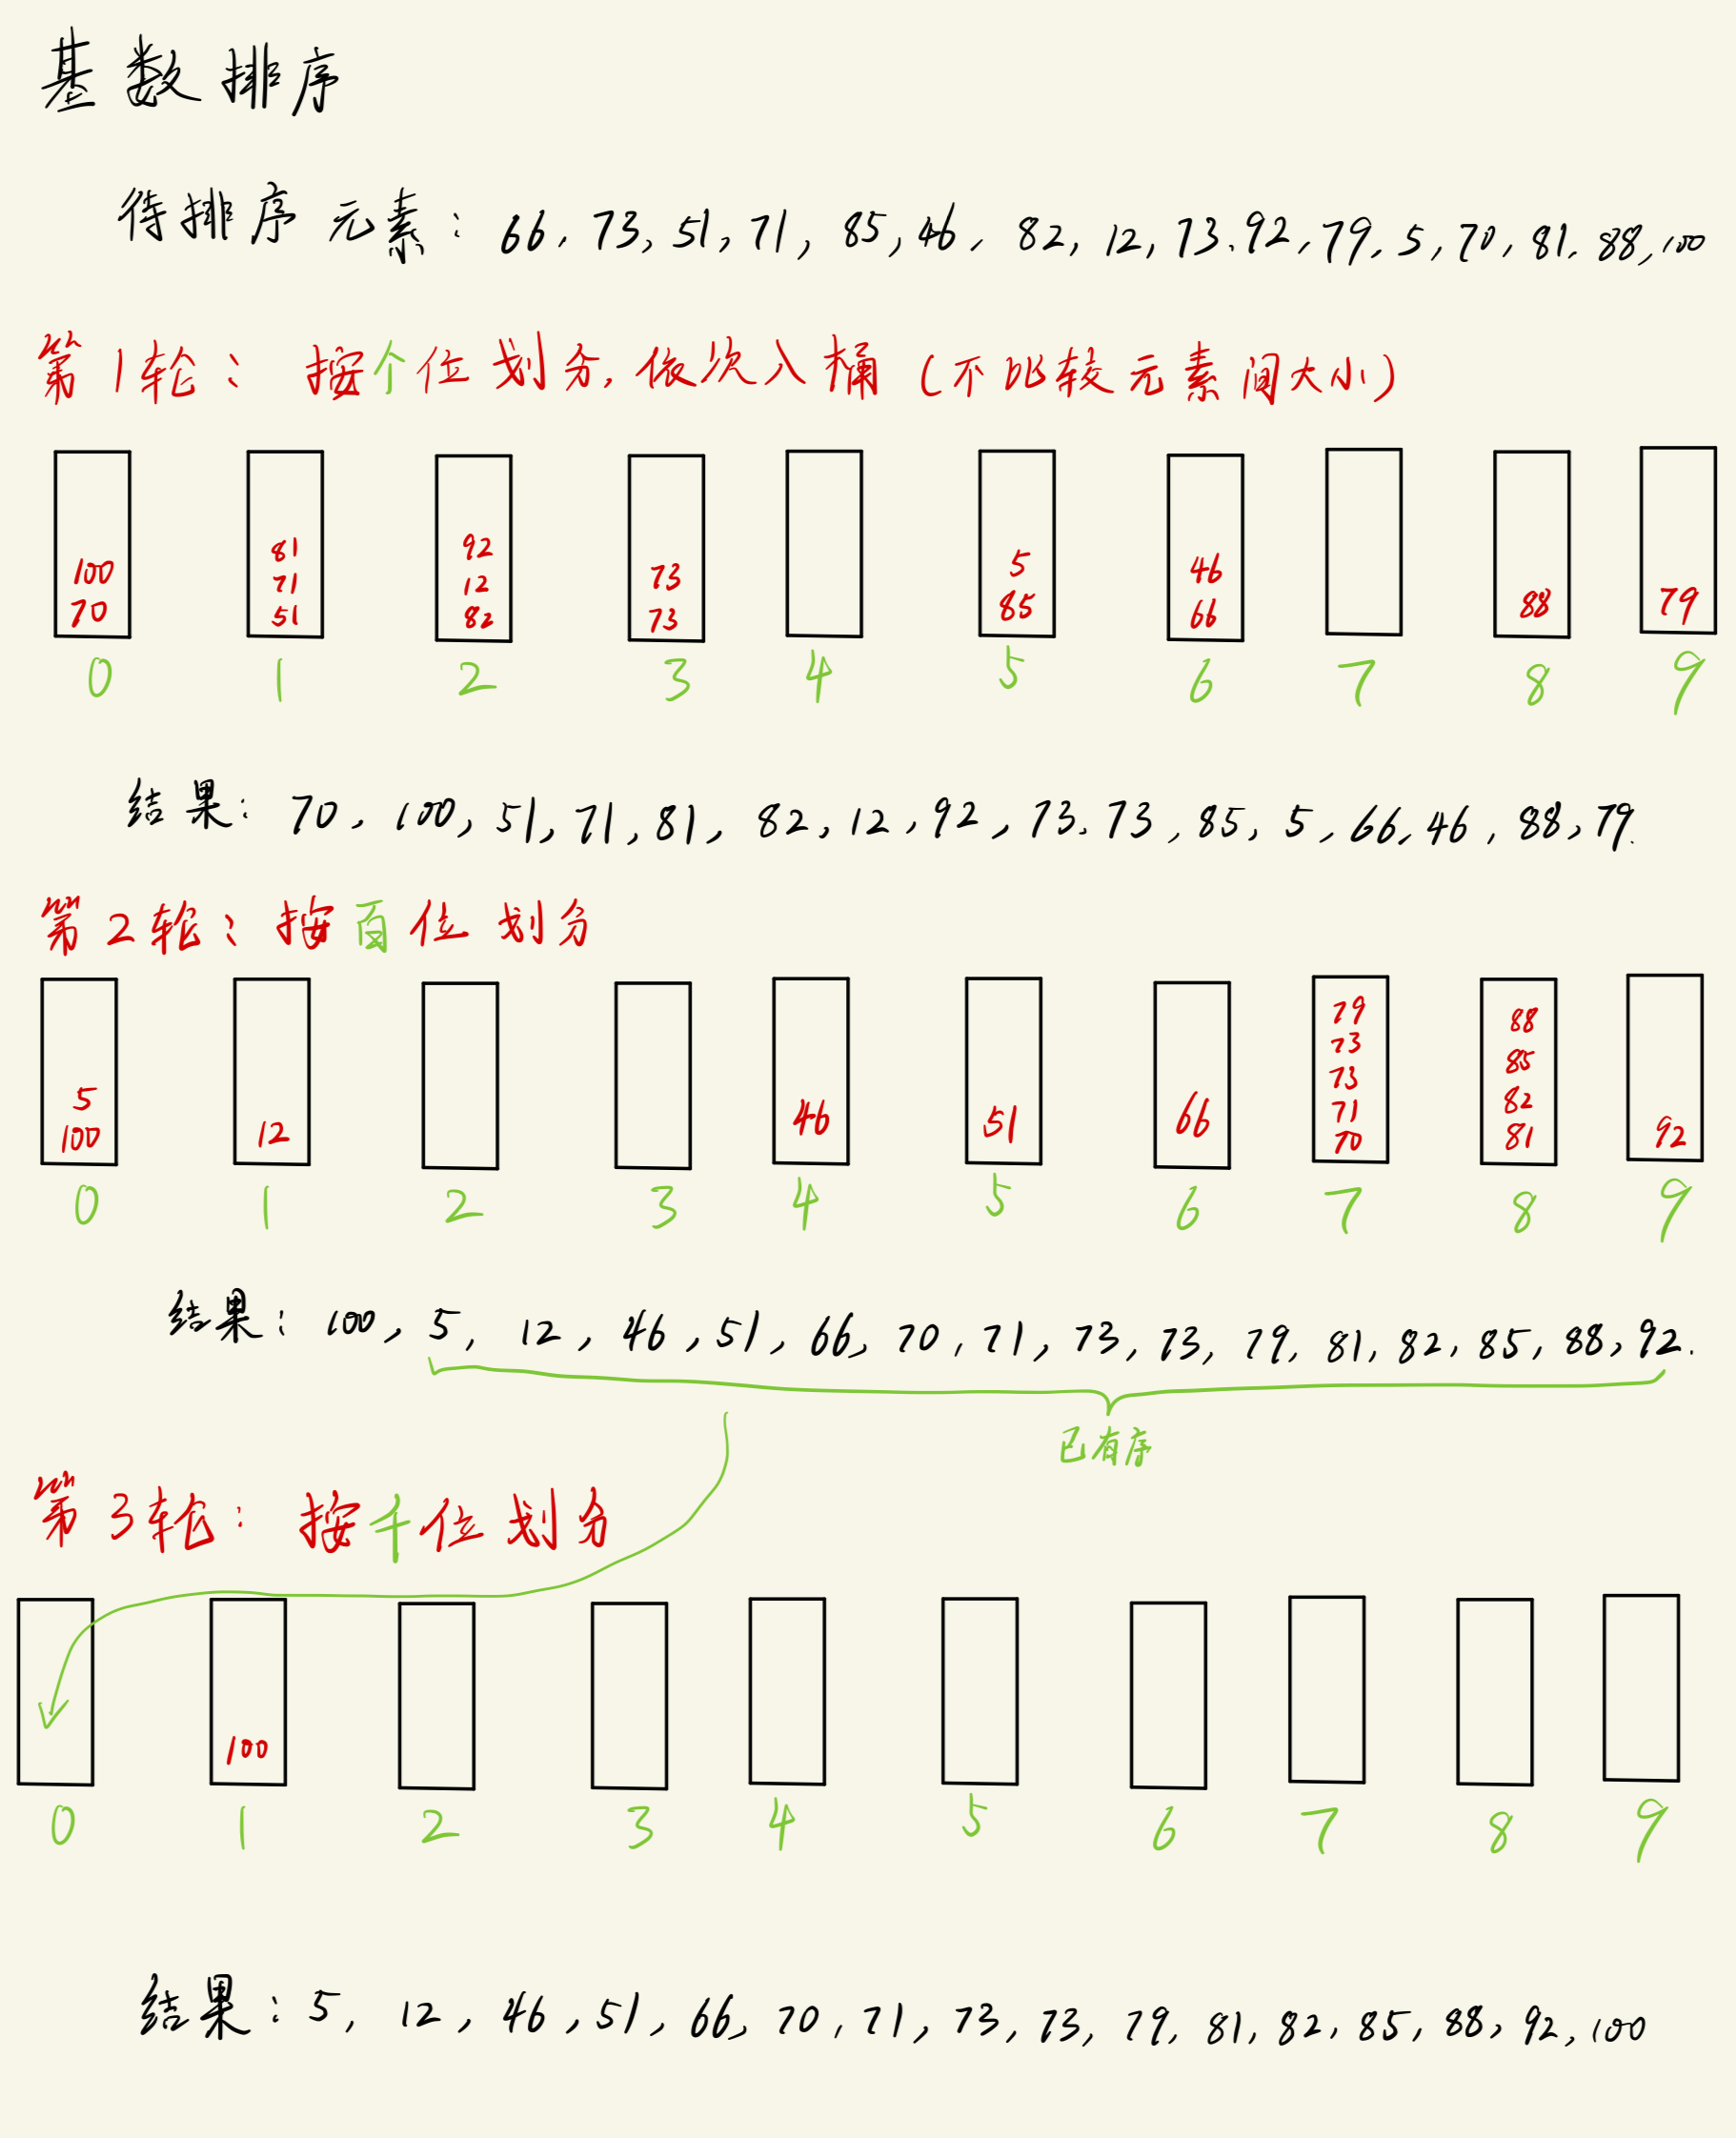 基数排序
待排序元素：66, 73, 51, 71, 85, 46, 82, 12, 73, 92, 79, 5, 70, 81, 88, 100
第1轮：按个位划分,依次入桶(不比较元素间大小)
100 81 92 73 5 46 88 79
70 71 12 73 85 66
51 82
0 1 2 3 4 5 6 7 8 9
结果：70, 100, 51, 71, 81, 82, 12, 92, 73, 73, 85, 5, 66, 46, 88, 79.
第2轮：按百位划分
79 88
73 85
5 73 82
100 12 46 51 66 71 81 92
70
0 1 2 3 4 5 6 7 8 9
结果：100, 5, 12, 46, 51, 66, 70, 71, 73, 73, 79, 81, 82, 85, 88, 92.
已有序
第3轮：按千位划分
100
0 1 2 3 4 5 6 7 8 9
结果：5, 12, 46, 51, 66, 70, 71, 73, 73, 79, 81, 82, 85, 88, 92, 100